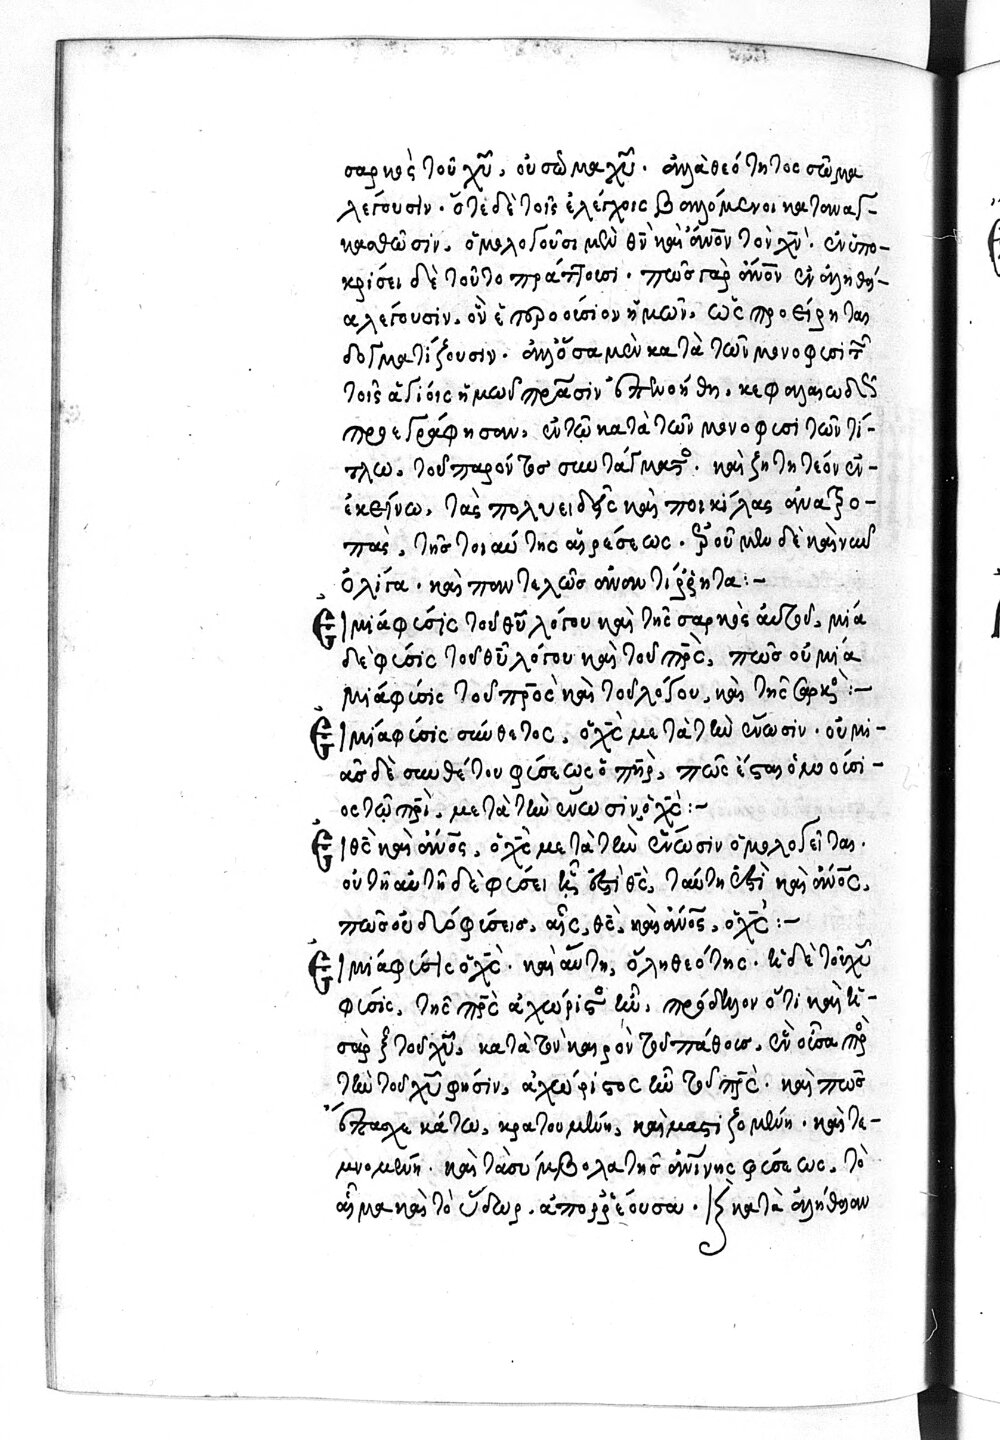 σαρκὸς τοῦ χῦ, οὐ σῶμα χῦ· ἀλλὰ θεότητος σῶμα
λέγουσιν· ὅτε δὲ τοῖς ἐλέγχοις βαλλόμενοι καταναγ-
κασθῶσιν, ὁμολογοῦσι μὲν θν̄ καὶ ἄνον τὸν χν̄· ἐν ὑπο-
κρίσει δὲ τοῦτο πράττουσι· πῶς γὰρ ἄνον ἐν ἀληθεί-
α λέγουσιν, ὃν ἑτεροούσιον ἡμῶν, ὡς προείρηται
δογματίζουσιν· ἀλλ' ὅσα μὲν κατὰ τῶν μονοφυσιτ
τοῖς ἁγίοις ἡμῶν πρασιν ἐπενοήθη, κεφαλαιωδῶς
προεγράφησαν, ἐν τῷ κατὰ τῶν μονοφυσιτῶν τί-
τλω, τοῦ παρόντος συντάγματος· καὶ ζητητέον ἐν
ἐκείνω, τὰς πολυειδεῖς καὶ ποικίλας ἀνατρο-
πὰς, τῆς τοιαύτης αἱρέσεως· ἡμῖν δὲ καὶ νῦν
ὀλίγα· καὶ παντελῶς ἀναντίρρητα:-
Εἰ μία φύσις τοῦ θυ λόγου καὶ τῆς σαρκὸς αὐτοῦ, μία
δὲ φύσις τοῦ θυ λόγου καὶ τοῦ πρς, πῶς οὐ μία
μία φύσις τοῦ προς καὶ τοῦ λόγου, καὶ τῆς σαρκός:-
Εἰ μία φύσις σύνθετος, ὁ χς μετὰ τὴν ἕνωσιν· οὐ μι-
ᾶς δὲ συνθέτου φύσεως ὁ πηρ, πῶς ἔσται ὁμοούσι-
ος τῷ πρι, μετὰ τὴν ἕνωσιν, ὁ χς:-
Εἰ θς καὶ ἄνος, ὁ χς μετὰ τὴν ἕνωσιν ὁμολογεῖται·
οὐ τῇ αὐτῇ δὲ φύσει ᾗ ἐστὶ θς, ταύτη ἐστὶ καὶ ἄνος,
πῶς οὐ δύο φύσεις, εἷς, θς, καὶ ἄνος, ὁ χς:-
Εἰ μία φύσις ὁ χς· καὶ αὕτη, ὅλη θεότης· ἡ δὲ τοῦ χυ
φύσις, τῆς πρς ἀχώριστος ἦν, πρόδηλον ὅτι καὶ ἡ
σὰρξ τοῦ χυ, κατὰ τὸν καιρὸν τοῦ πάθους, ἓν οὖσα πρὸς
τὴν τοῦ χυ φησὶν, ἀχώριστος ἦν τοῦ πρς· καὶ πῶς
ἔπασχε κάτω, κρατουμένη, καὶ μαστιζομένη· καὶ τε-
μνομένη· καὶ τὰ σύμβολα τῆς ἀνίνης φύσεως, τὸ
αἷμα καὶ τὸ ὕδωρ, ἀπορρέουσα· εἰ κατὰ ἀλήθειαν